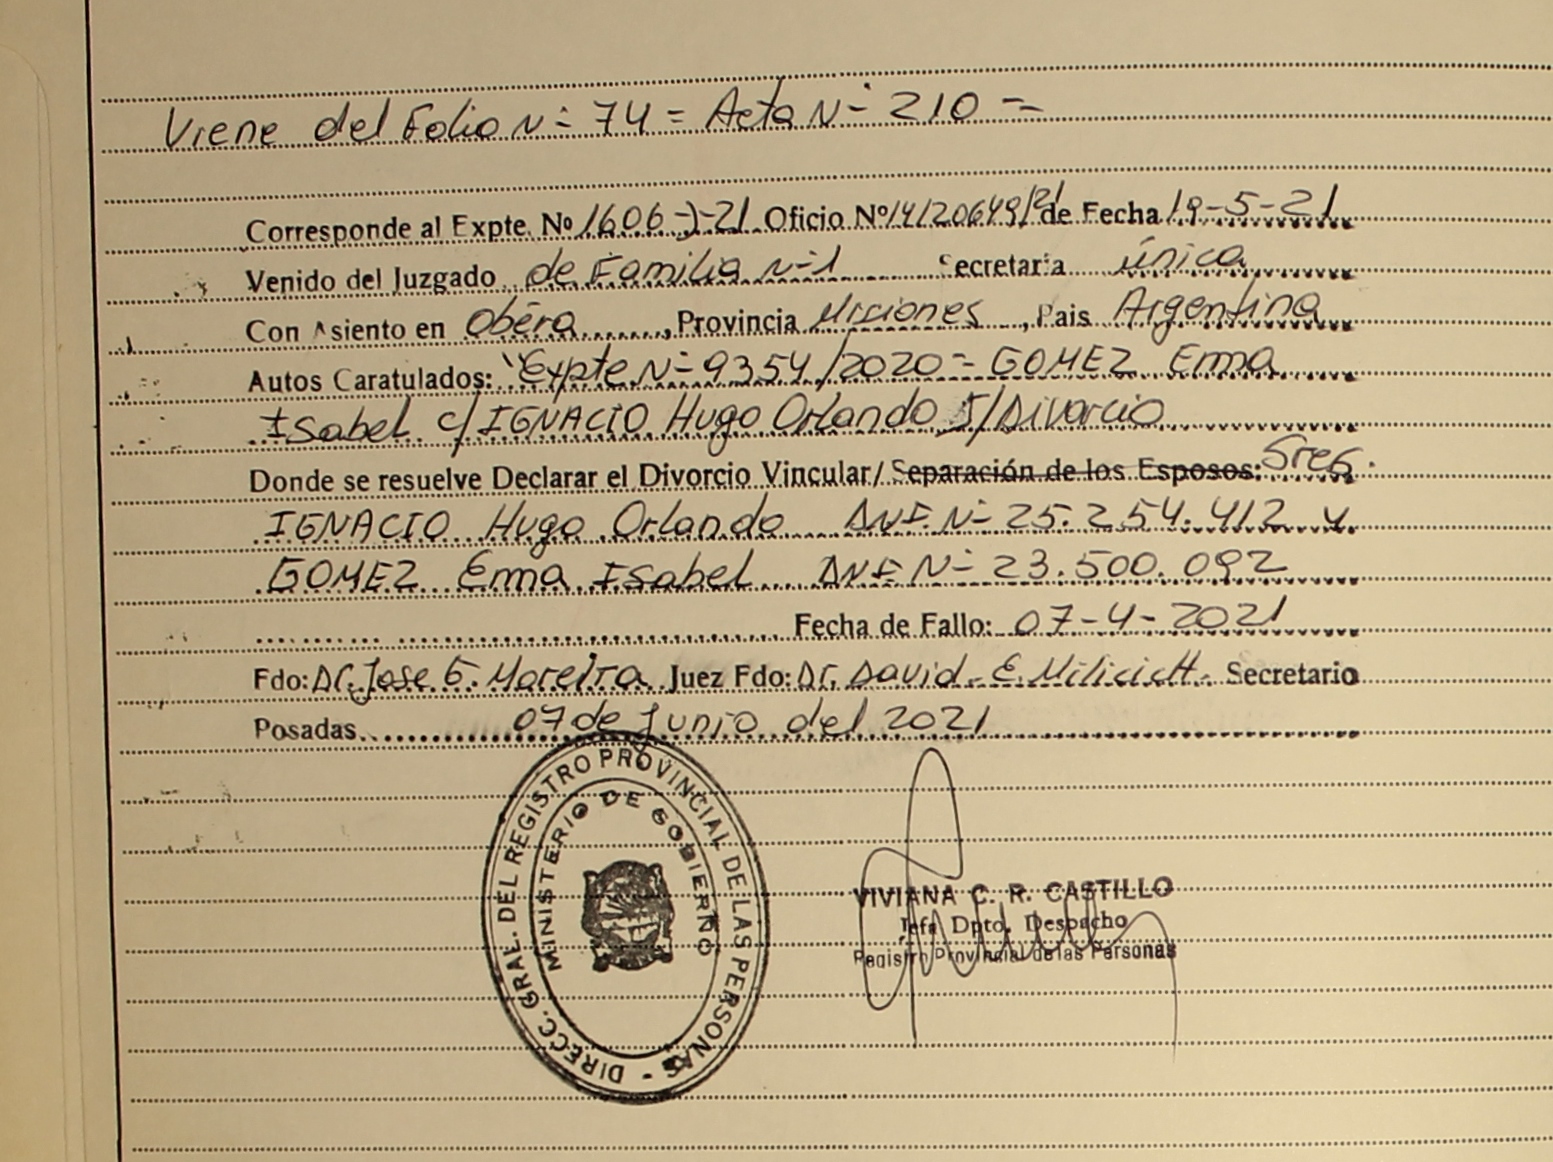 Viene del Folio N- 74 = Acta N- 210 =
Corresponde al Expte. Nº 1606-J-21 Oficio Nº 14120649/21 de Fecha 19-5-21
Venido del Juzgado de Familia N-1 Secretaria única
Con Asiento en Obéra, Provincia Misiones, Pais Argentina
Autos Caratulados: "Expte N- 9354/2020 - GOMEZ Erma
Isabel c/ IGNACIO Hugo Orlando S/Divorcio
Donde se resuelve Declarar el Divorcio Vincular/ Separación de los Esposos: Sres.
IGNACIO Hugo Orlando DNI N- 25.254.412 y
GOMEZ Erma Isabel DNI N- 23.500.092
Fecha de Fallo: 07-4-2021
Fdo: Dr. Jose G. Moreira Juez Fdo: Dr. David E. Milicich Secretario
Posadas 07 de Junio del 2021
DIRECC. GRAL. DEL REGISTRO PROVINCIAL DE LAS PERSONAS -
MINISTERIO DE GOBIERNO
VIVIANA C. R. CASTILLO
Jefa Dpto. Despacho
Registro Provincial de las Personas